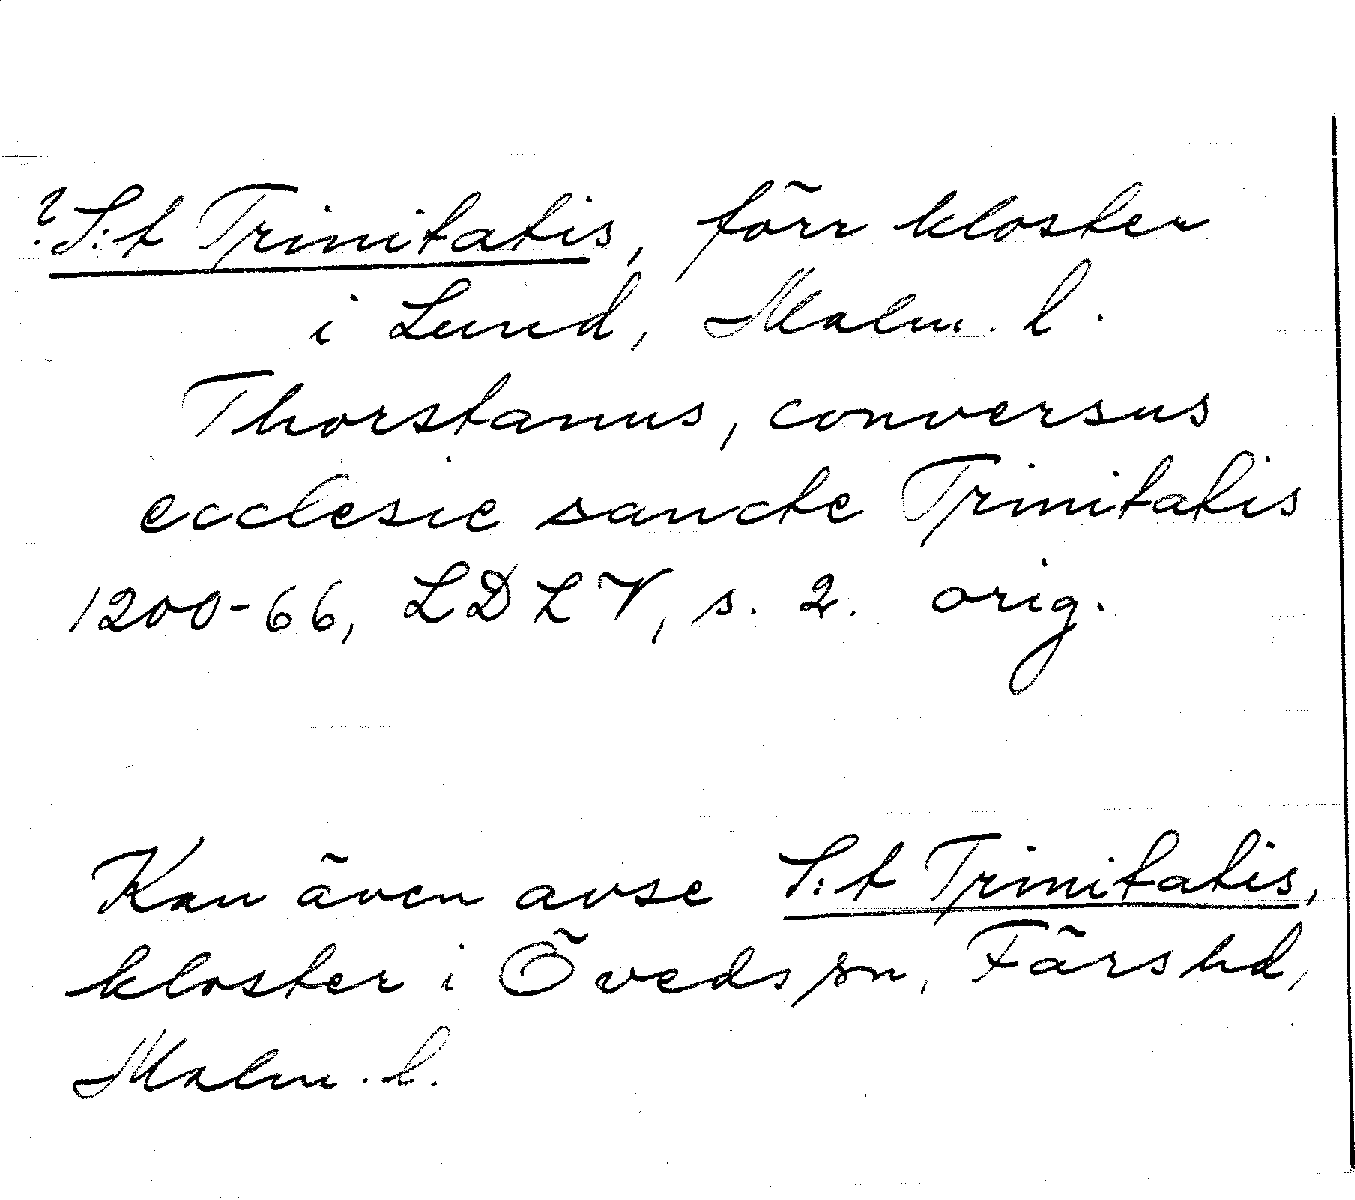 ? S:t Trinitatis, förr kloster
i Lund, Malm. l.
Thorstanus, conversus
ecclesie sancte Trinitatis
1200-66, LDLV, s. 2. orig.
Kan även avse S:t Trinitatis,
kloster i Öveds sn, Färs hd,
Malm. l.